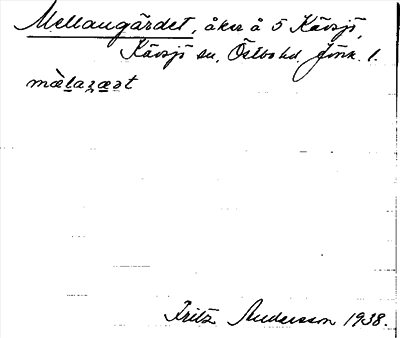 Mellangärdet, åker å 5 Kävsjö,
Kävsjö sn, Östbo hd. Jönk. l.
mälaʒæət
Fritz Andersson 1938.